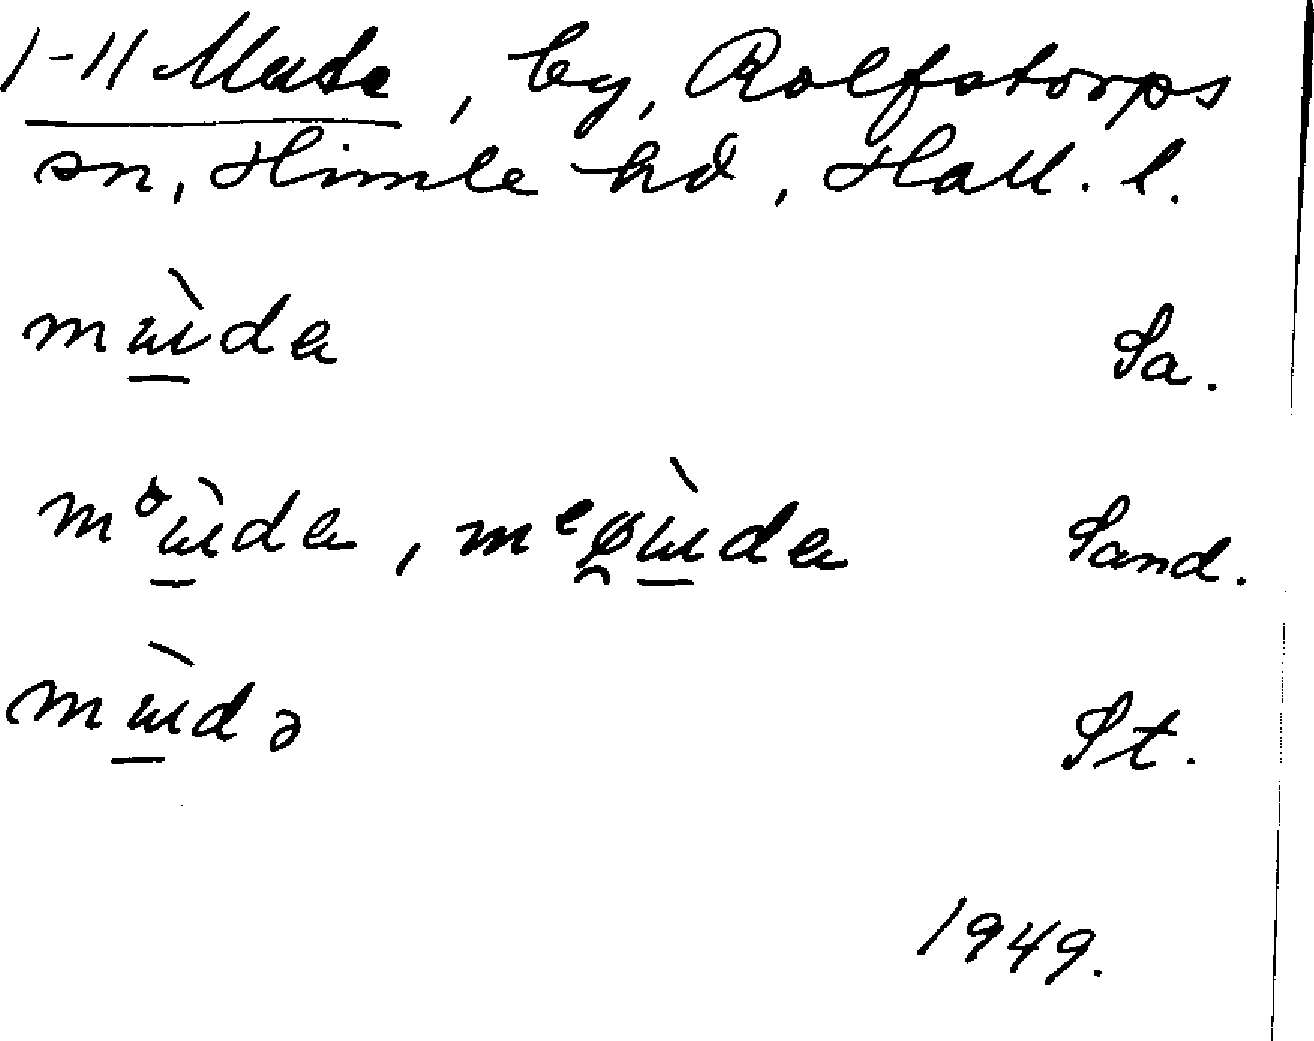 1-11 Mute, by, Rolfstorps
sn, Himle hd, Hall. l.
mɯ̲̀da Sa.
mᵒɯ̲̀da, mᵉɯ̲̀da Sand.
mɯ̲̀də St.
1949.